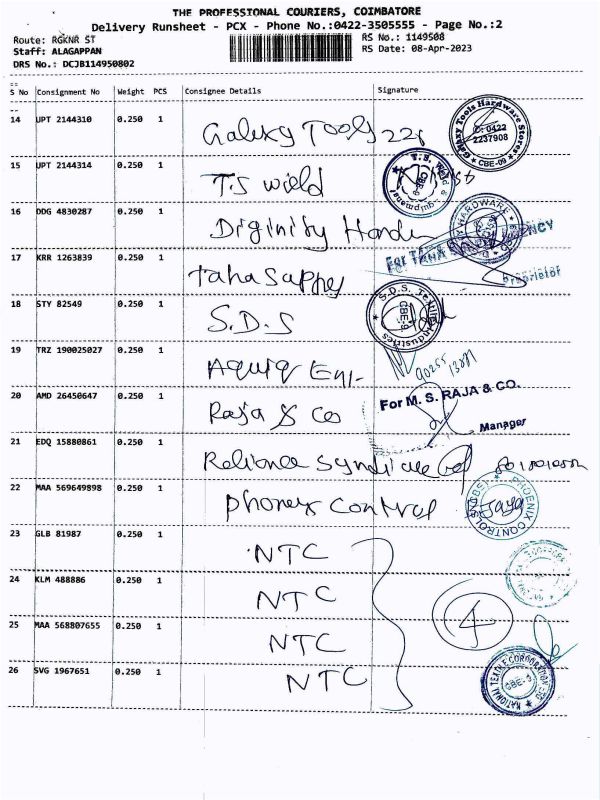 THE PROFESSIONAL COURIERS, COIMBATORE
Delivery Runsheet - PCX - Phone No.:0422-3505555 - Page No.:2
Route: RGKNR ST RS No.: 1149508
Staff: ALAGAPPAN RS Date: 08-Apr-2023
DRS No.: DCJB114950802
S No Consignment No Weight PCS Consignee Details Signature
14 UPT 2144310 0.250 1 Galaxy Tools 228
Galaxy Tools Hardware Stores
0422
2237908
CBE-09
15 UPT 2144314 0.250 1 T.S wield
T.S.
16 DDG 4830287 0.250 1 Diginity Hardw
HARDWARE
17 KRR 1263839 0.250 1 Taha Sappey
For TAHA AGENCY
Proprietor
18 STY 82549 0.250 1 S.D.S
S.D.S. Textile Industries
CBE-9
19 TRZ 190025027 0.250 1 Aquiq Eni-
90255
20 AMD 26450647 0.250 1 Raja & Co
For M. S. RAJA & CO.
Manager
21 EDQ 15880861 0.250 1 Reliance Syndicate
22 MAA 569649898 0.250 1 Phonex Control
PHOENIX CONTROLS
Jaya
23 GLB 81987 0.250 1 NTC
24 KLM 488886 0.250 1 NTC
4
25 MAA 568807655 0.250 1 NTC
26 SVG 1967651 0.250 1 NTC
NATIONAL TRADE CORPORATION
CBE-9